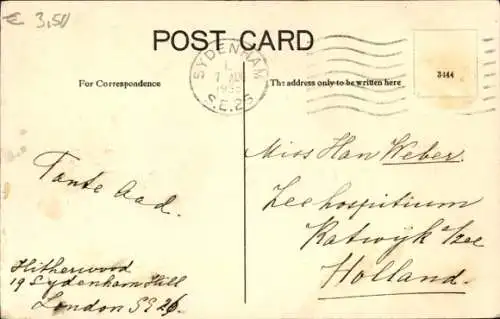 € 3,50
POST CARD
SYDENHAM
1
7 AU
S.E.26
3444
For Correspondence
The address only to be written here
Miss Han Weber.
Zeehospitium
Katwijk a/zee
Holland.
Tante Aad.
Hitherwood
19 Sydenham Hill
London SE 26